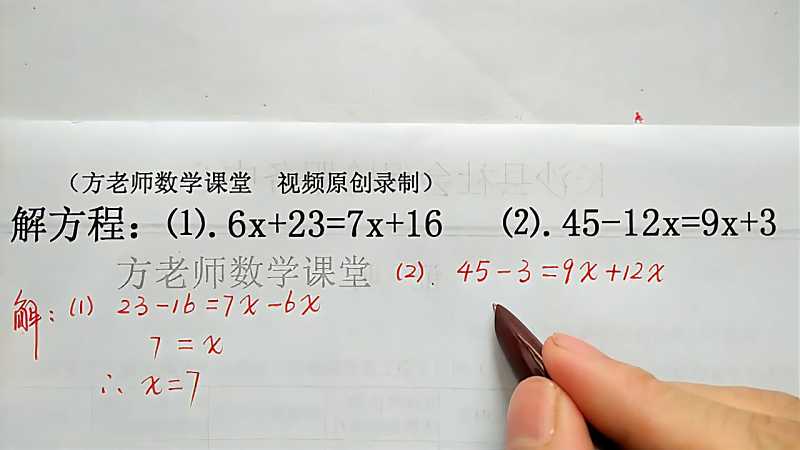 （方老师数学课堂　视频原创录制）
解方程：⑴.6x+23=7x+16　⑵.45-12x=9x+3
方老师数学课堂
(2) 45-3=9x+12x
解：(1) 23-16=7x-6x
7=x
∴ x=7